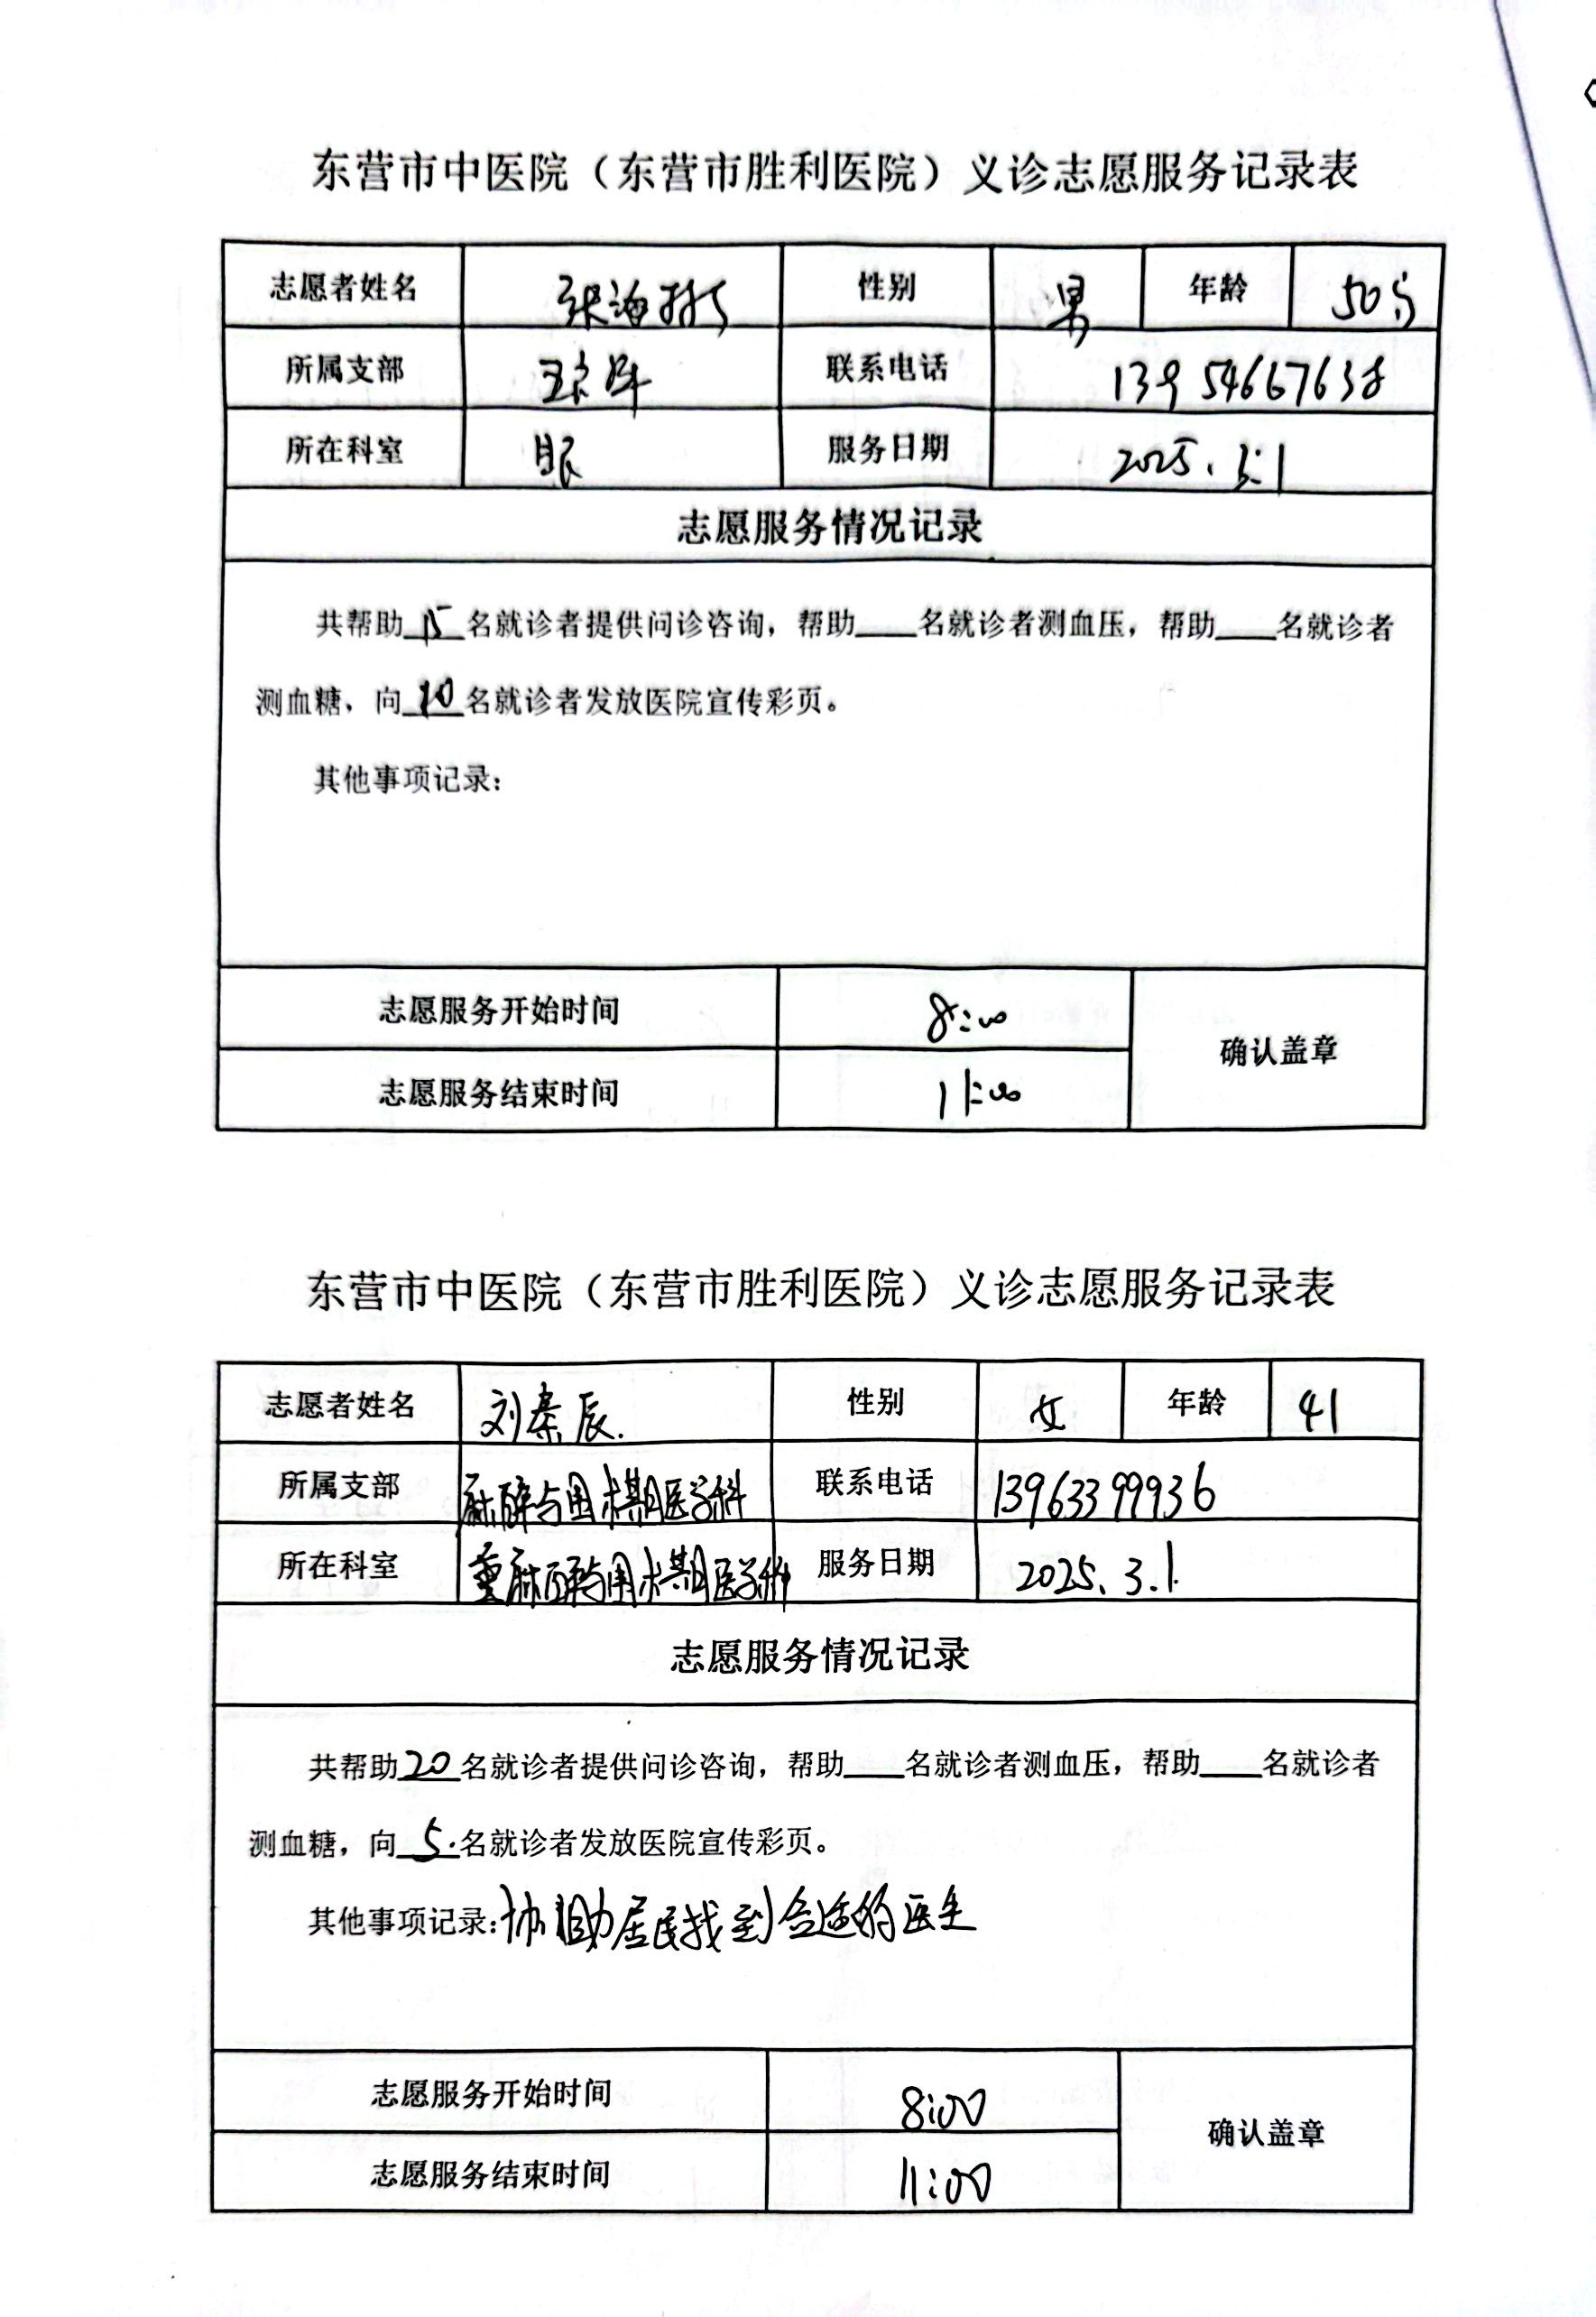 东营市中医院（东营市胜利医院）义诊志愿服务记录表
志愿者姓名 张海 性别 男 年龄 50岁
所属支部 联系电话 13954667638
所在科室 眼 服务日期 2025.3.1
志愿服务情况记录
共帮助15名就诊者提供问诊咨询，帮助____名就诊者测血压，帮助____名就诊者
测血糖，向10名就诊者发放医院宣传彩页。
其他事项记录：
志愿服务开始时间 8:00
确认盖章
志愿服务结束时间 11:00
东营市中医院（东营市胜利医院）义诊志愿服务记录表
志愿者姓名 刘秦辰. 性别 女 年龄 41
所属支部 麻醉与围术期医学科 联系电话 13963399936
所在科室 麻醉与围术期医学科 服务日期 2025.3.1.
志愿服务情况记录
共帮助20名就诊者提供问诊咨询，帮助____名就诊者测血压，帮助____名就诊者
测血糖，向5.名就诊者发放医院宣传彩页。
其他事项记录：协助居民找到合适的医生
志愿服务开始时间 8:00
确认盖章
志愿服务结束时间 11:00